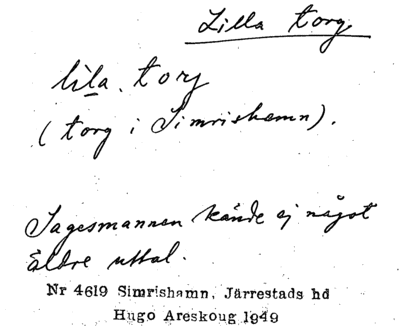 Lilla torg
lila torj
(torg i Simrishamn).
Sagesmannen kände ej något
äldre uttal.
Nr 4619 Simrishamn, Järrestads hd
Hugo Areskoug 1949